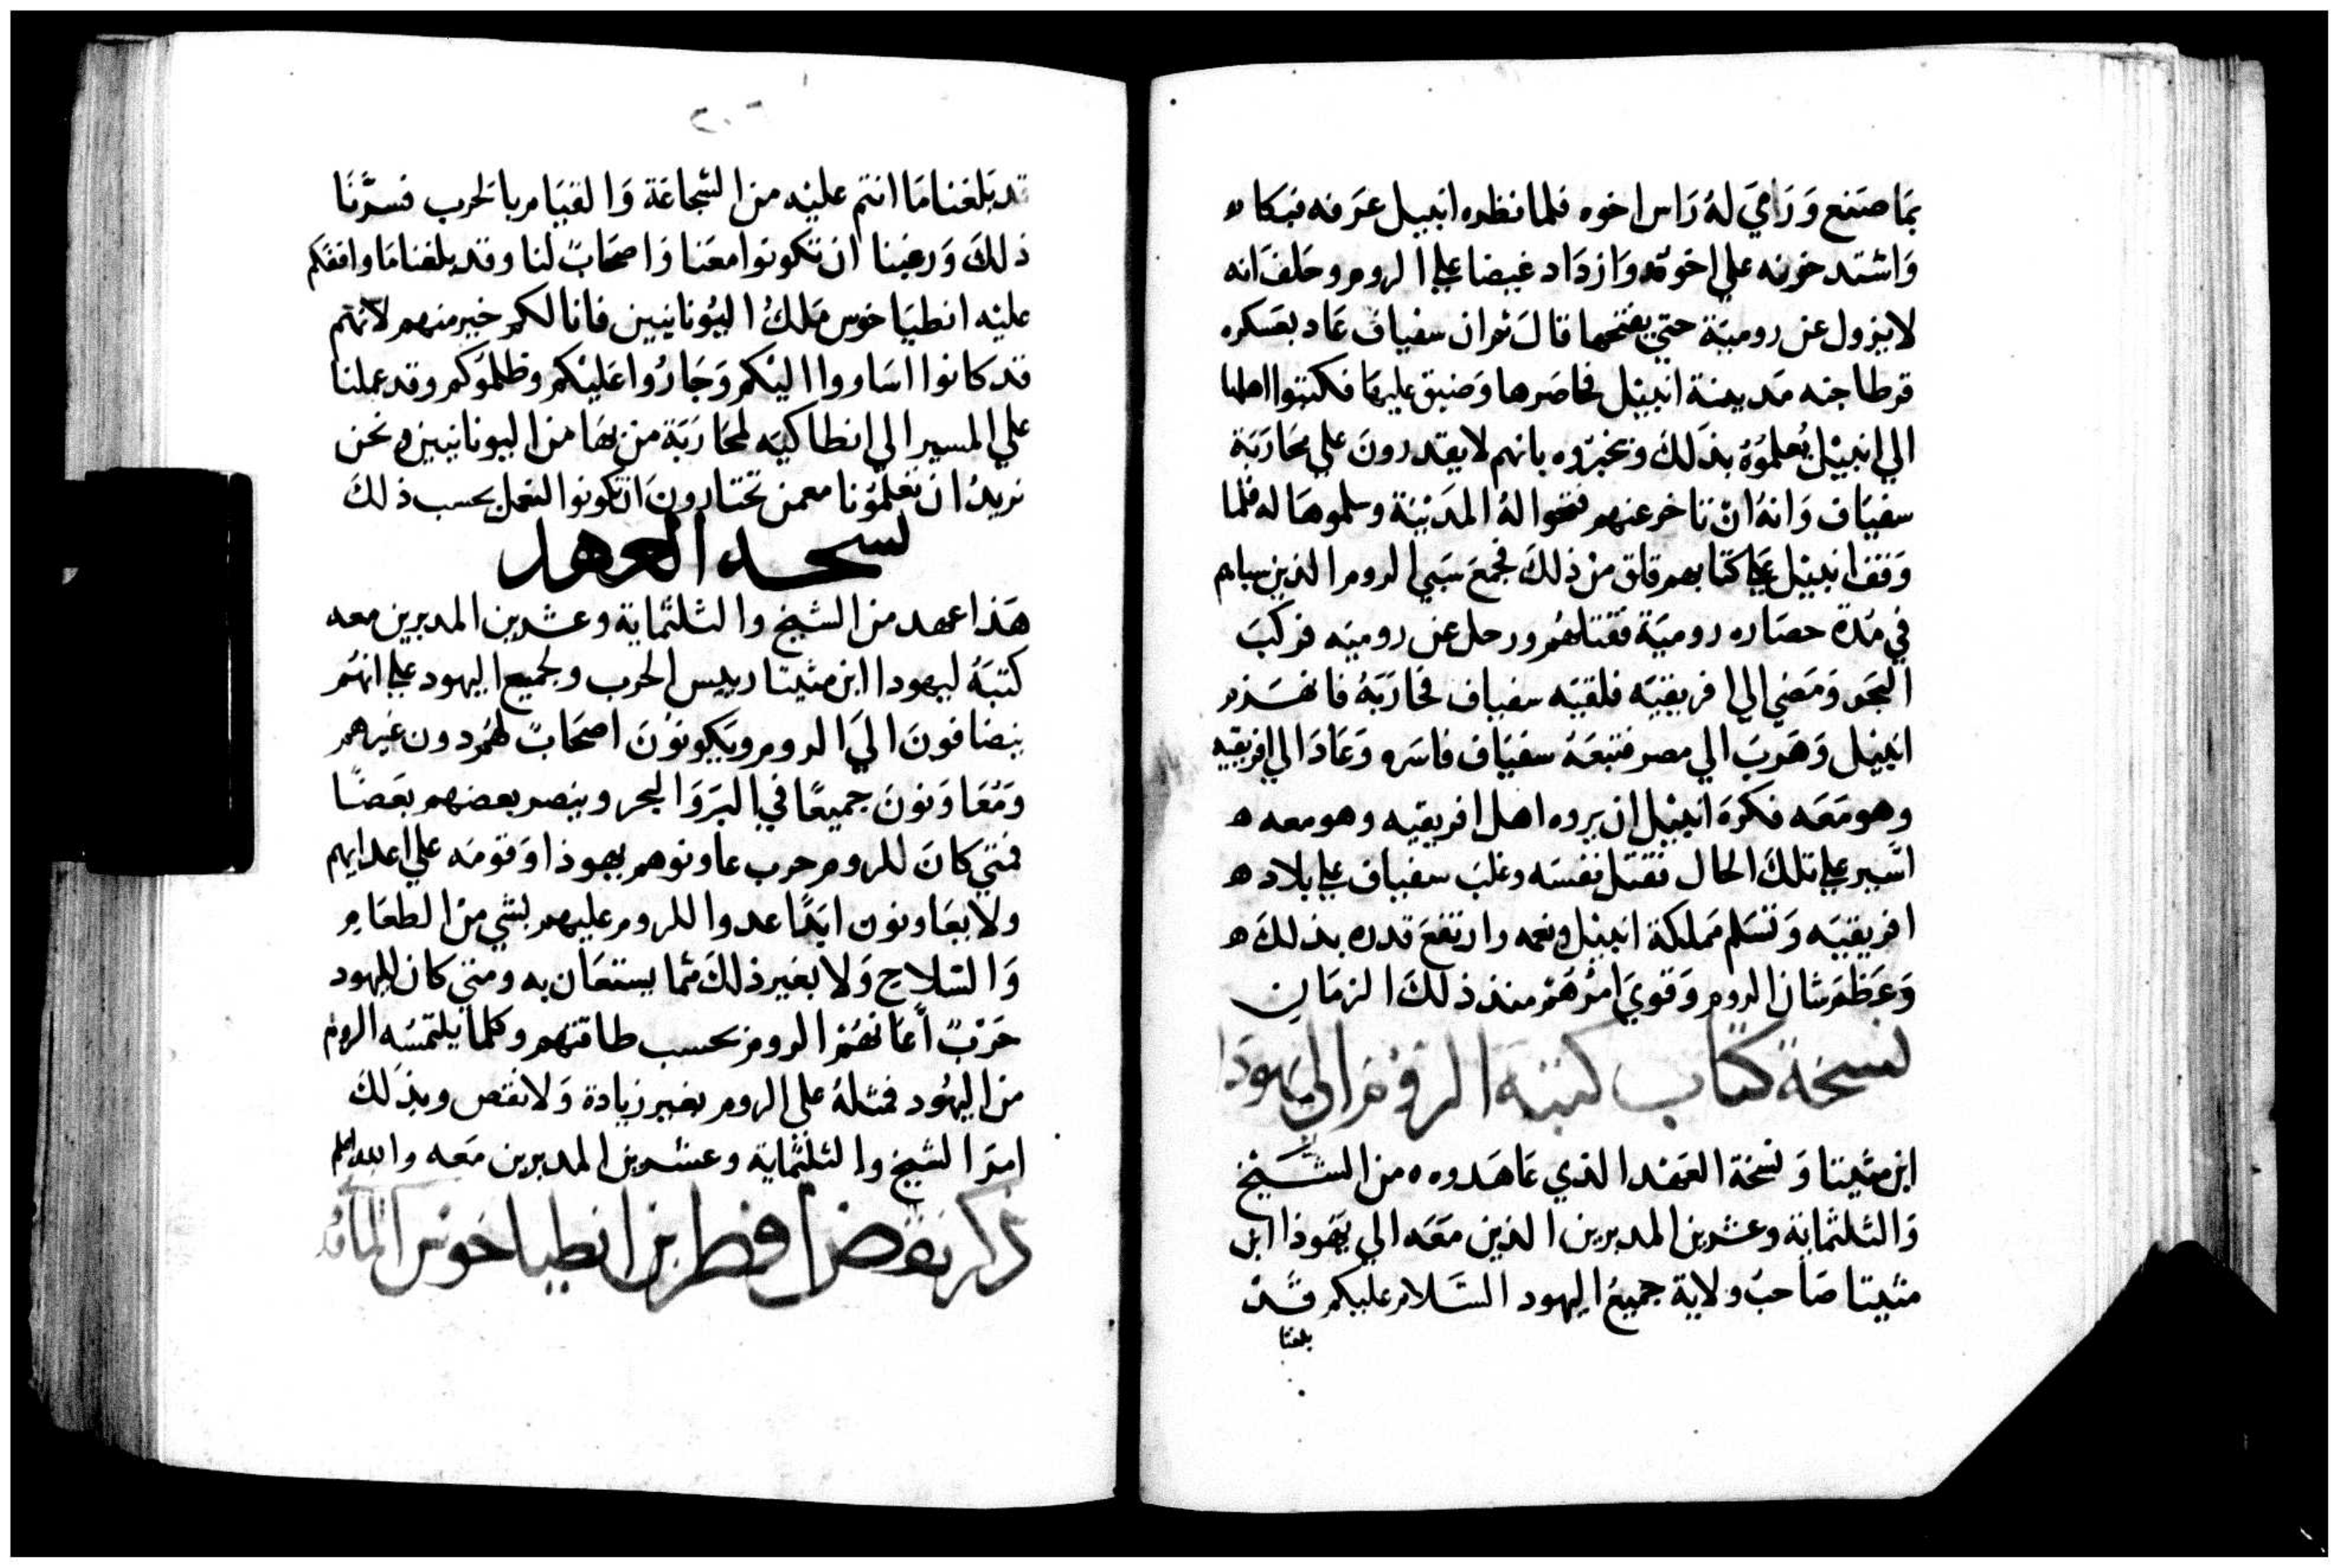 بمَا صَنَع وَرَامَي لهُ رَاس اخوه فلما نظره انبيل عَرَفه فبكاه
وَاشتد حزنه علي اخوته وَازدَاد غيضا علي الروم وحَلفَ انه
لا يزول عن روميَة حتي يفتحها قالَ ثم ان سفياف عَاد بعَسكره
قرطاجنه مَدينة انيبَل فحاصَرها وَضيق عليهَا فكتبوا اهلها
الي انيبَل يُعلموُهُ بذلكَ وتخبرَوه بانهم لا يقدرونَ علي محَارَبَة
سفيَاف وَانهُ ان تاخر عنهم فتحوا لهُ المَدَينَة وسلموهَا له فلما
وَقف انيبَل علي كتابهم قلق من ذلكَ فجمعَ سَبي الروم الذين سباهم
في مُدة حصَاره روميَة فقتلهُم ورحل عن روميَه فركبَ
البَحر وَمَضي الي افريقيَه فلقيَه سفياف فحَارَبَهُ فانهَزم
انيبَل وَهَربَ الي مصر فتبعَهُ سفيَاف فاسَره وَعَادَ الي افريقيه
وهو مَعَه فكرَه انيبَل ان يروه اهل افريقيه وهو معه ه
اسَير علي تلكَ الحال فقتل نفسَه وغلبَ سفياف علي بلاد ه
افريقيَه وَتسَلم مَملكة انيبَل ونعمه وارتفعَ قدره بذلكَ ه
وَعَظمَ شان الروم وَقويَ امرُهَمُ منذ ذلكَ الزمَان
نسخة كتاب كتبَه الروُم الي يهودَا
ابن مثيتا وَنسخة العَهد الذي عَاهَدوه من الشَيخ
وَالثلثمَاية وعشرين المدبرين الذين مَعَه الي يَهوذا ابن
مثيتا صَاحبُ ولاية جميعُ اليهود السَلام عليكم قَدْ
بلغنا
٢٠٦
قد بَلغنا مَا انتم عليْه من الشجاعَة وَالقيَام بالحَرب فسرَّنَا
ذلكَ وَرضينا ان تكونوا معَنا وَاصحَابً لنا وقد بلغنا مَا وافقكم
عليْه انطيَاخوس مَلكُ اليُونانيين فانا لكم خير منهم لانهم
قد كانوا اسَاووا اليْكم وَجَارُوا عَليْكم وظلمُوكم وقد عملنا
علي المسير الي انطاكيَه لمحَارَبَة من بهَا من اليونانيين ونحن
نريدُ ان تعلمُونا مع من تختارونَ ان تكونوا لنعمل بحسب ذلكَ
نسخة العهد
هَذا عهد من الشيخ والثلثمَاية وعشرين المدبرين معه
كتبَهُ ليهودا ابن مثيتا رييس الحَرب ولجميع اليهود علي انهُم
ينضافونَ اليَ الروم ويَكونوُنَ اصحَابً لهُم دون غيرهم
وَمُعَاوَنونَ جميعًا في البَر وَالبحر وينصر بعضهم بعَضًا
فمتي كانَ للروم حرب عاونوهم يهوذا وَقومَه علي اعدايهم
ولا يعَاونون ابَدًا عدوا للروم عليهم بشي من الطعَام
وَالسَلاح وَلا بغير ذلكَ مَما يستعَان به ومتي كان لليهود
حَرْبً اعَانهُم الروم بحسب طاقتهم وكلما يلتمسَه الروم
من اليهُود فمثلهُ علي الروم بغير زيادة وَلا نقص وبذَلكَ
امرَ الشيخ والثلثمَاية وعشرين المدبرين مَعَه والله اعلم
ذكر نقض افطر بن انطياخوس